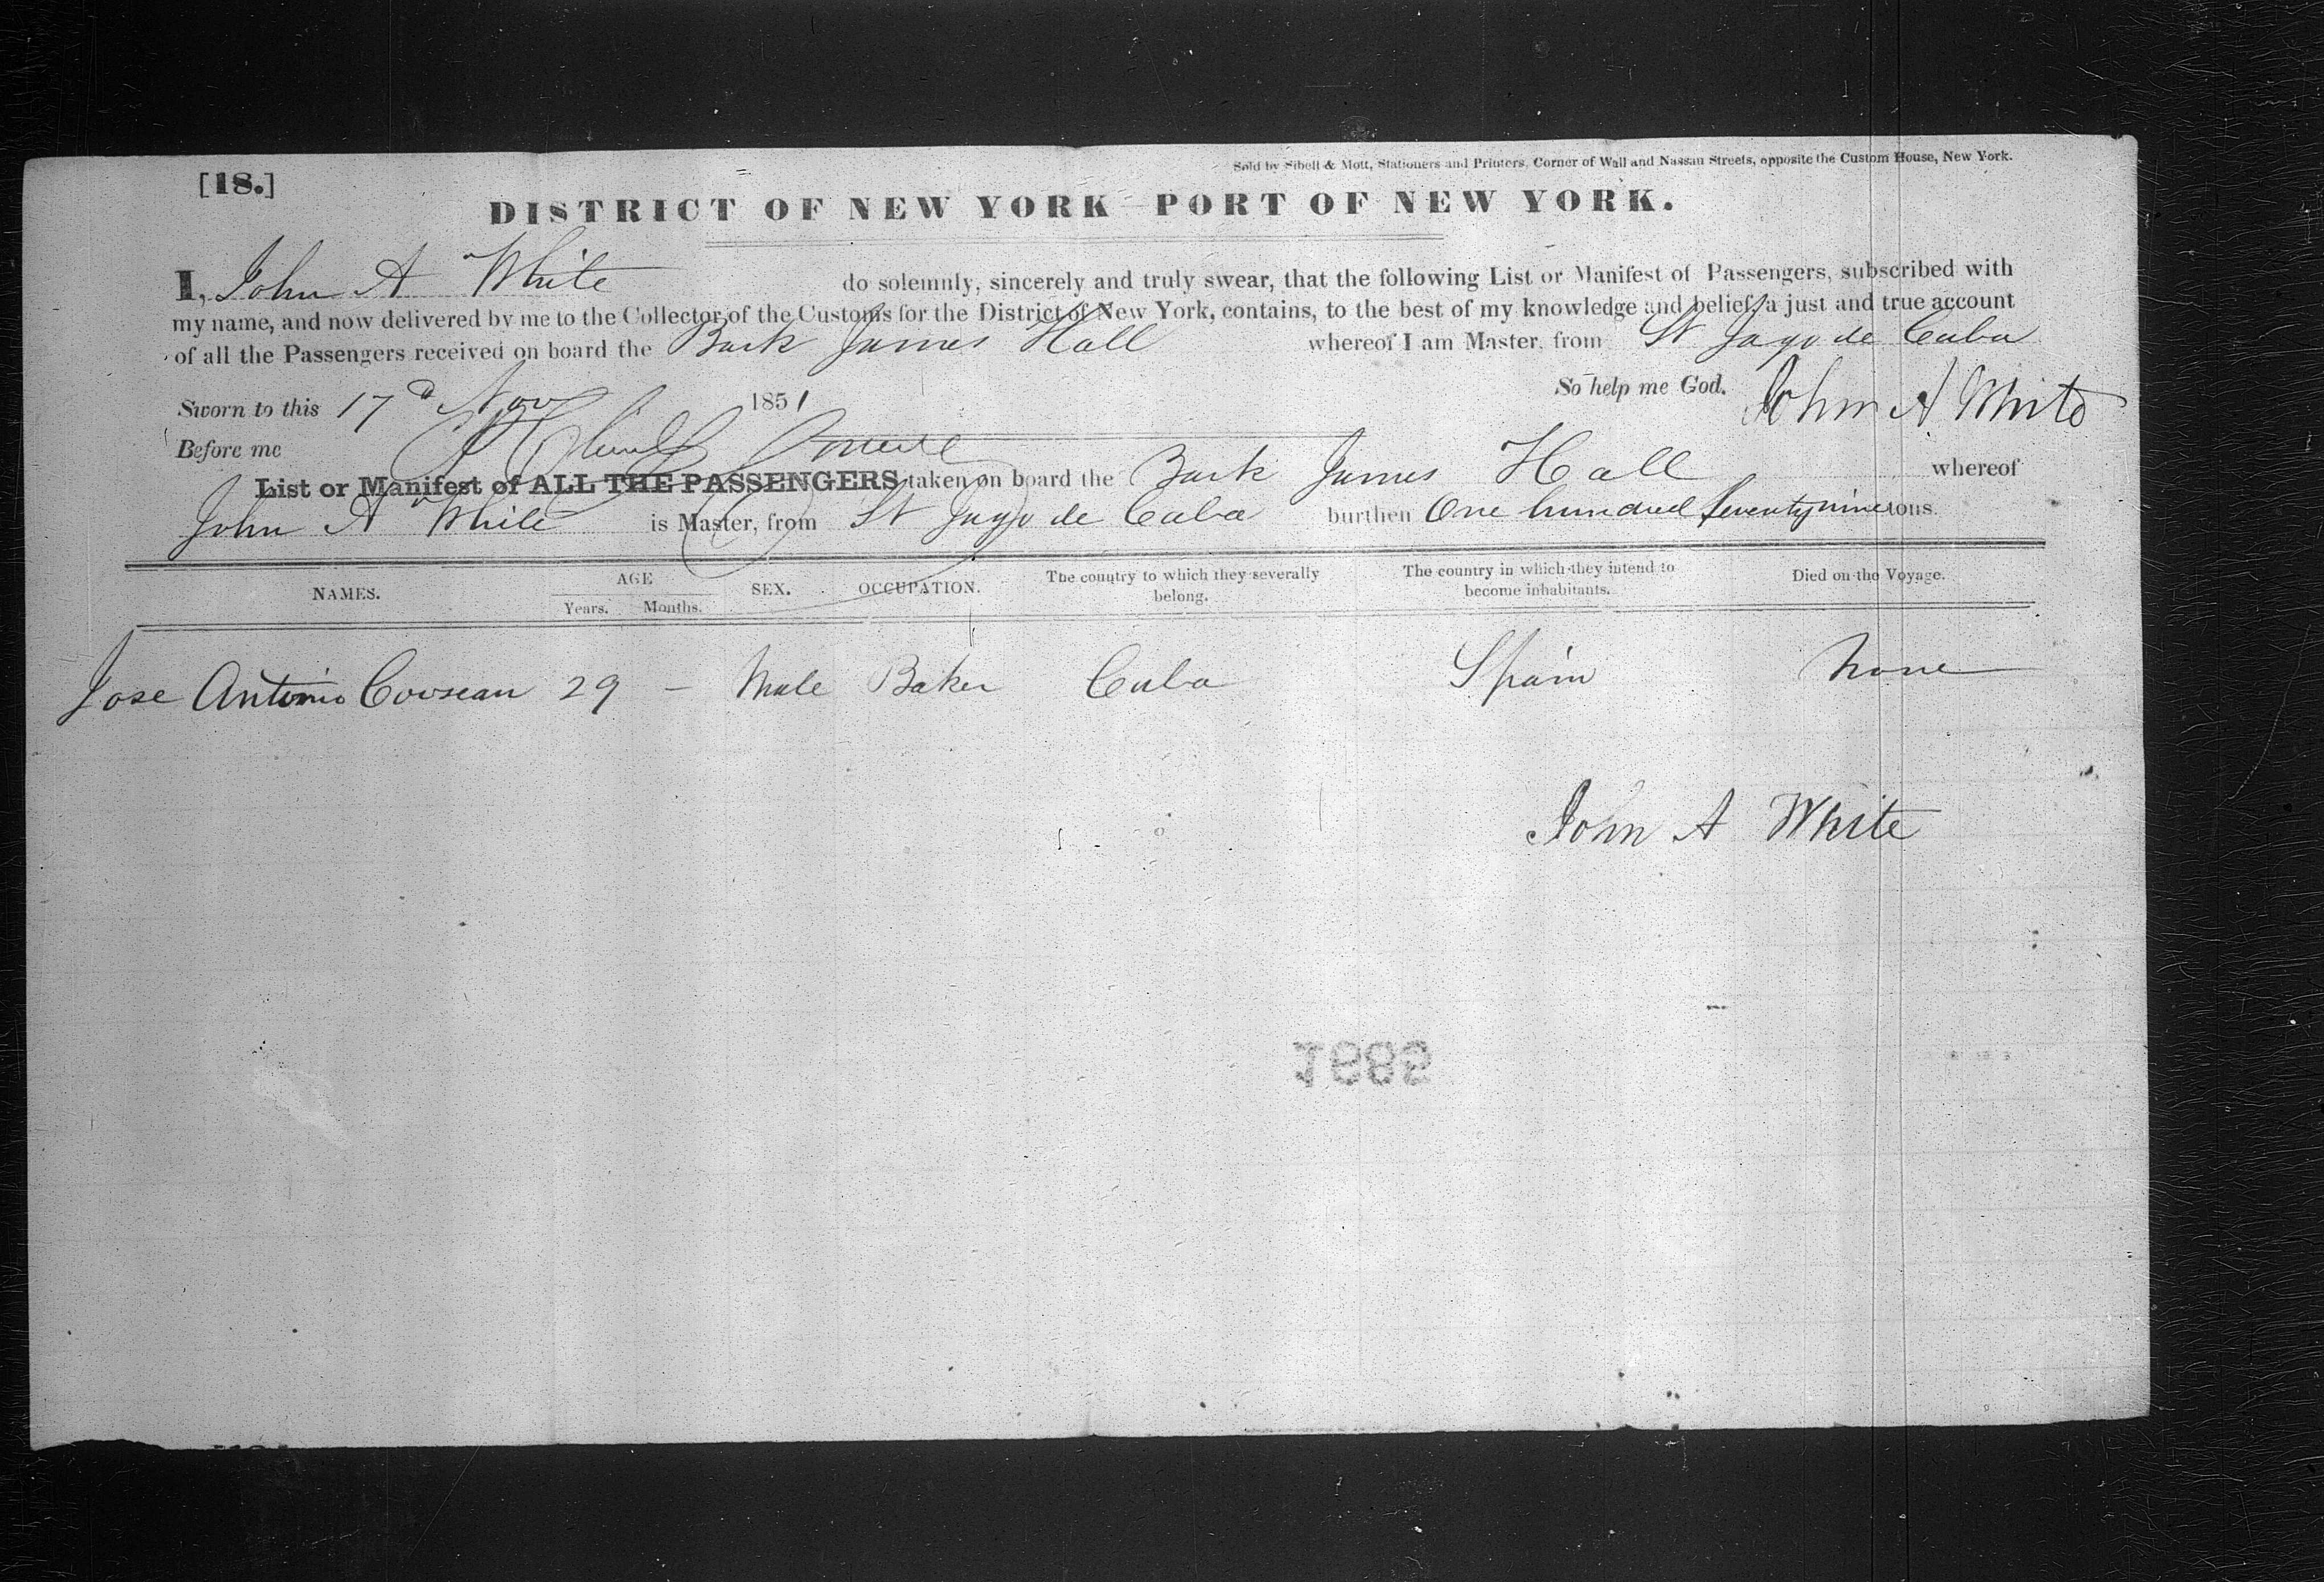 [18.]
Sold by Sibell & Mott, Stationers and Printers, Corner of Wall and Nassau Streets, opposite the Custom House, New York.
DISTRICT OF NEW YORK PORT OF NEW YORK.
I, John A White do solemnly, sincerely and truly swear, that the following List or Manifest of Passengers, subscribed with
my name, and now delivered by me to the Collector of the Customs for the District of New York, contains, to the best of my knowledge and belief, a just and true account
of all the Passengers received on board the Bark James Hall whereof I am Master, from St Jago de Cuba
So help me God. John A White
Sworn to this 17 Nov 1851
Before me
List or Manifest of ALL THE PASSENGERS taken on board the Bark James Hall whereof
John A White is Master, from St Jago de Cuba burthen One hundred Seventy nine tons.
NAMES. AGE Years. Months. SEX. OCCUPATION. The country to which they severally belong. The country in which they intend to become inhabitants. Died on the Voyage.
Jose Antonio 29 – Male Baker Cuba Spain None
John A White